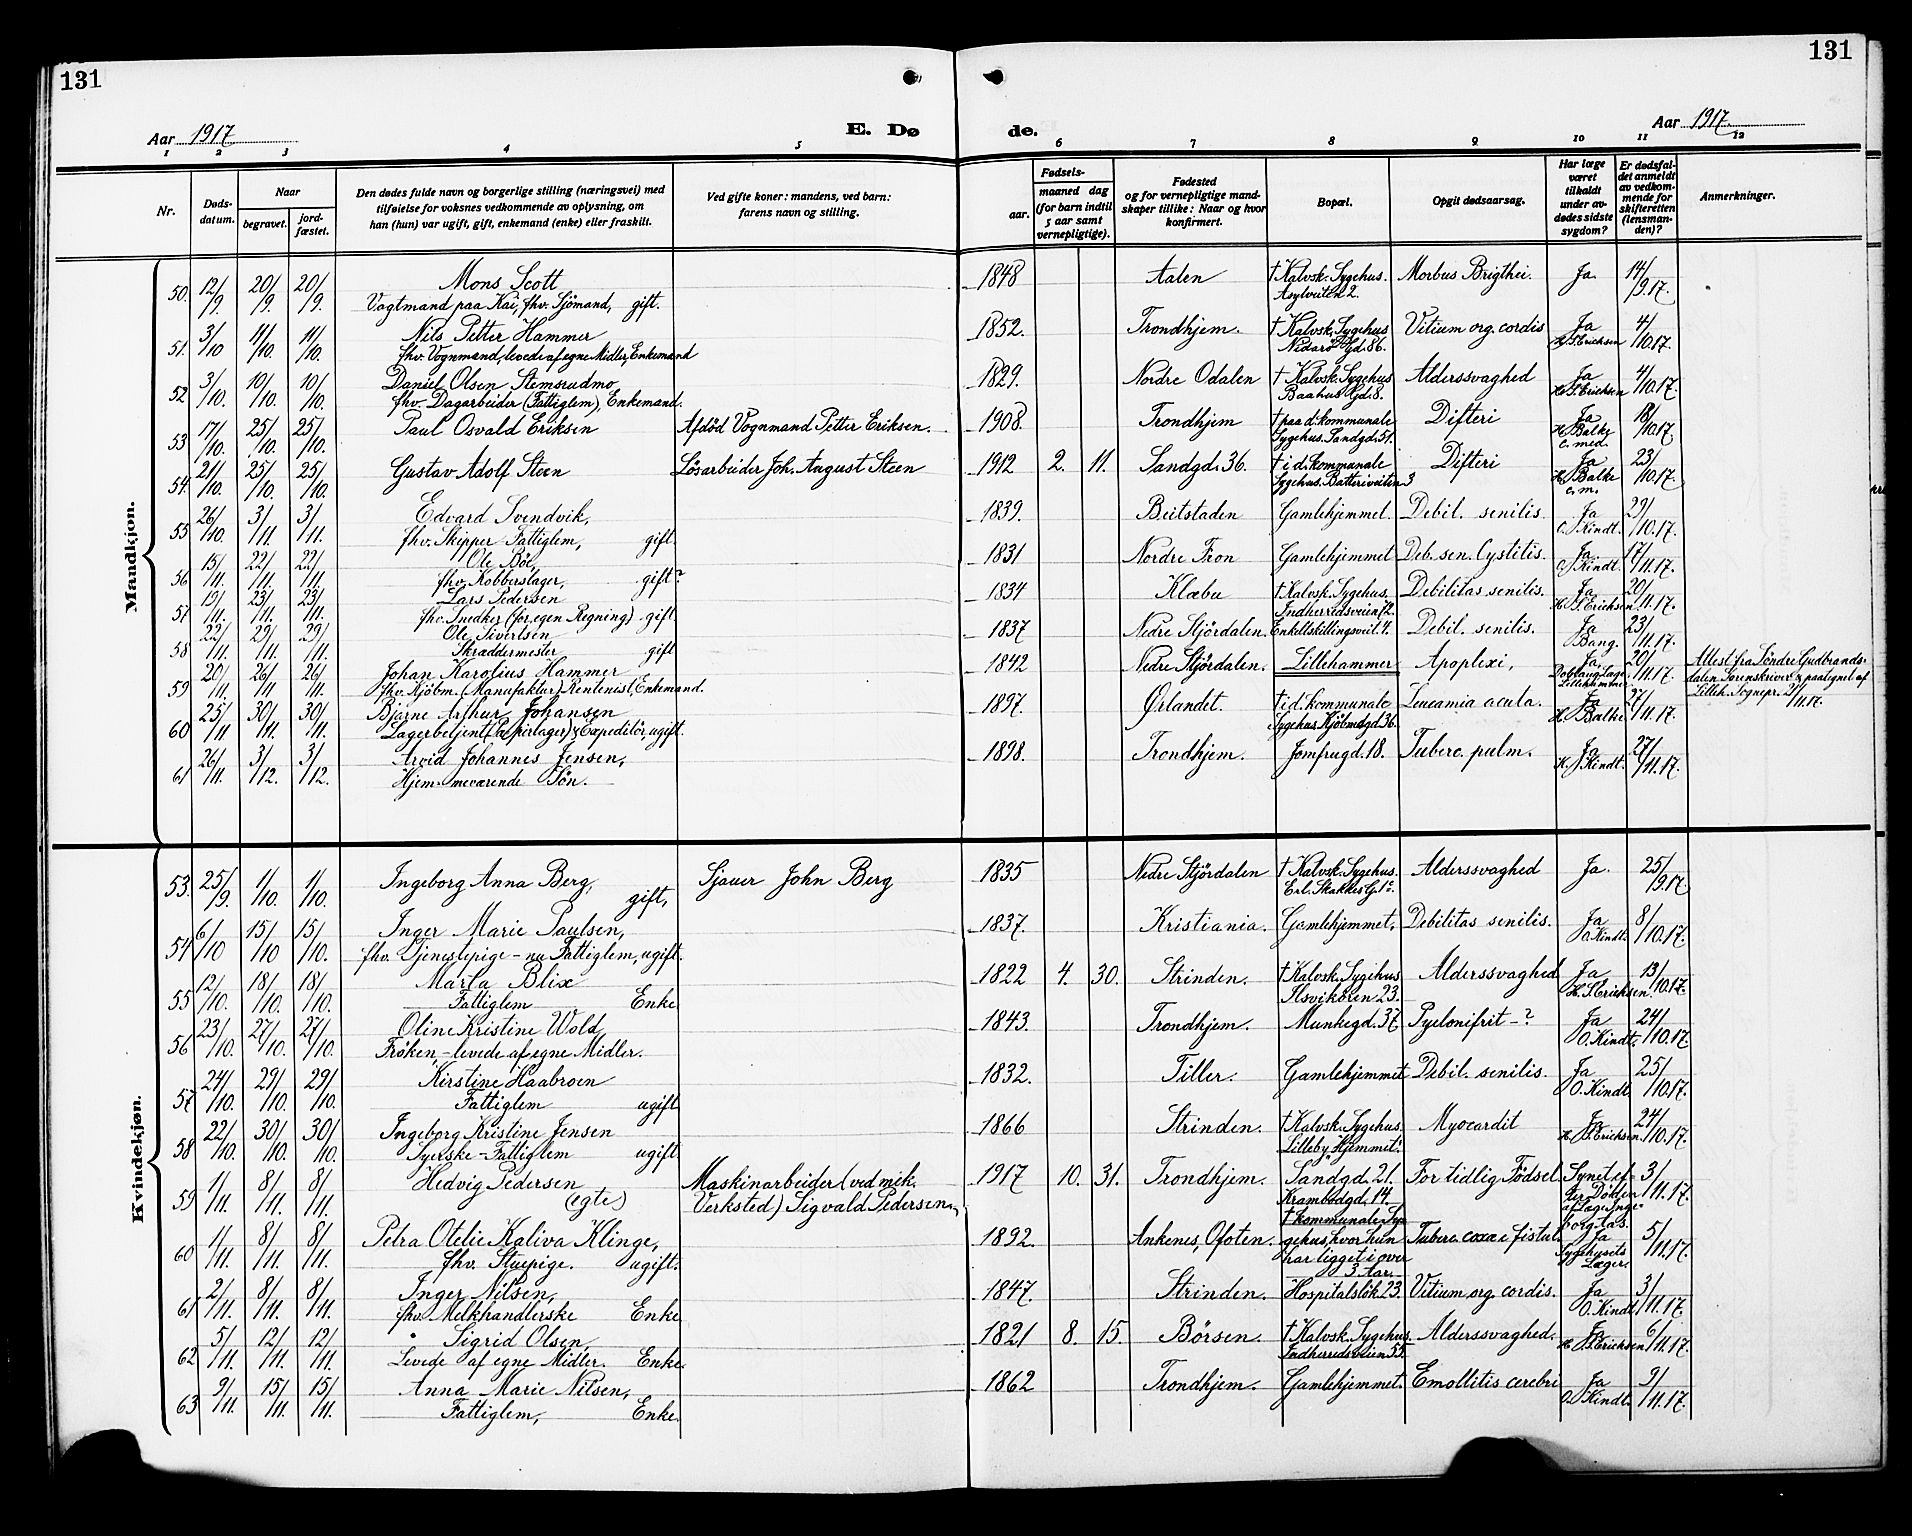 131
131
Aar 1917
E. Dø
de.
Aar 1917.
1 2 3 4 5 6 7 8 9 10 11 12
Nr.
Døds-
datum.
Naar
begravet.
jord-
fæstet.
Den dødes fulde navn og borgerlige stilling (næringsvei) med
tilføielse for voksnes vedkommende av oplysning, om
han (hun) var ugift, gift, enkemand (enke) eller fraskilt.
Ved gifte koner: mandens, ved barn:
farens navn og stilling.
Fødsels-
aar.
maaned dag
(for barn indtil
5 aar samt
vernepligtige).
Fødested
og for vernepligtige mand-
skaper tillike: Naar og hvor
konfirmert.
Bopæl.
Opgit dødsaarsag.
Har læge
været
tilkaldt
under av-
dødes sidste
sygdom?
Er dødsfal-
det anmeldt
av vedkom-
mende for
skifteretten
(lensman-
den)?
Anmerkninger.
Mandkjøn.
50. 12/9. 20/9. 20/9. Mons Scott 1848 Aalen † Kalvsk. Sygehus. Morbus Brigthii. Ja 14/9.17.
Vagtmand paa Kai, fhv. Sjömand, gift. Asylveiten 2.
51. 3/10 11/10. 11/10. Nils Petter Hammer 1852. Trondhjem. † Kalvsk. Sygehus Vitium org. cordis Ja 4/10.17.
fhv. Vognmand, levede af egne Midler, Enkemand Nidarö Gd. 86. H. S. Erichsen
52 3/10. 10/10. 10/10. Daniel Olsen Stemsrudmo 1829. Nordre Odalen † Kalvsk. Sygehus Alderssvaghed Ja 4/10.17.
fhv. Dagarbeider (Fattiglem), Enkemand. Baahus Gd. 8. H. S. Erichsen
53 17/10. 25/10. 25/10. Paul Osvald Eriksen Afdöd Vognmand Petter Eriksen. 1908. Trondhjem † paa d. kommunale Difteri Ja 18/10.17.
Sygehus. Sandgd. 51. H. Balke
c. med.
54. 21/10. 25/10. 25/10. Gustav Adolf Steen Lösarbeider Joh. August Steen 1912 2. 11. Sandgd. 36. † i d. kommunale Difteri Ja 23/10.17.
Sygehus. Batteriveiten 3 H. Balke
c. m.
55 26/10. 3/11. 3/11. Edvard Svendvik, 1839. Beitstaden Gamlehjemmet. Debil. senilis. Ja 29/10.17.
fhv. Skipper Fattiglem, gift. O. Kindt.
56 15/11. 22/11. 22/11. Ole Böe, 1831 Nordre Fron Gamlehjemmet Deb. sen. Cystitis. Ja. 17/11.17.
fhv. Kobberslager, gift? O. Kindt.
57 19/11. 23/11. 23/11. Lars Pedersen 1834 Klæbu † Kalvsk. Sygehus. Debilitas senilis. Ja 20/11.17.
fhv. Snedker (for egen Regning) gift. Indherredsveien 72. H. S. Erichsen
58 22/11. 29/11. 29/11. Ole Sivertsen 1837 Nedre Stjördalen. Enkeltskillingsveit. 4. Debil. senilis. Ja 23/11.17.
Skræddermester gift Bang.
59 20/11. 26/11 26/11. Johan Karolius Hammer 1842 Nedre Stjördalen. Lillehammer Apoplexi, Ja, 20/11.17. Attest fra Söndre Gudbrands-
fhv. Kjöbm. (Manufaktur) Rentenist, Enkemand. Lillehammer dalen Sorenskriveri & paategnet af
Lilleh. Sognepr. 21/11.17.
60 25/11 30/11. 30/11. Bjarne Arthur Johansen 1897. Ørlandet. † i d. kommunale Leucæmia acuta. Ja 27/11.17.
Lagerbetjent (Papirlager) & Expeditör, ugift. Sygehus. Kjöbmdgd. 36. H. Balke
61 26/11. 3/12. 3/12. Arvid Johannes Jensen, 1898. Trondhjem. Jomfrugd. 18. Tuberc. pulm. Ja 27/11.17.
Hjemmeværende Sön. K. J. Kindt.
Kvindekjøn.
53. 25/9. 1/10. 1/10. Ingeborg Anna Berg, Sjauer John Berg 1835 Nedre Stjördalen † Kalvsk. Sygehus. Alderssvaghed Ja. 25/9.17
gift, Erl. Skakkes G. 1.
54 6/10 15/10 15/10. Inger Marie Paulsen, 1837. Kristiania. Gamlehjemmet, Debilitas senilis. Ja 8/10.17.
fhv. Tjenestepige – nu Fattiglem, ugift. O. Kindt.
55 12/10. 18/10. 18/10. Marta Blix 1822 4. 30. Strinden. † Kalvsk. Sygehus Alderssvaghed Ja 13/10.17.
Fattiglem Enke Ilsvikören 23. H. S. Erichsen.
56 23/10. 27/10. 27/10. Oline Kristine Wold 1843. Trondhjem. Munkegd. 37 Pyelonifrit – ? Ja 24/10.17.
Fröken – levede af egne Midler. O. Kindt.
57 24/10. 29/10. 29/10. Kirstine Haabroen 1832. Tiller. Gamlehjemmet Debil. senilis. Ja 25/10.17.
Fattiglem ugift O. Kindt.
58 22/10. 30/10. 30/10. Ingeborg Kristine Jensen 1866 Strinden. † Kalvsk. Sygehus. Myocardit Ja 24/10.17.
Syerske – Fattiglem ugift "Lilleby Hjemmet". H. S. Erichsen
59 1/11. 8/11. 8/11. Hedvig Pedersen Maskinarbeider (ved mek. 1917 10. 31. Trondhjem. Sandgd. 21. For tidlig Födsel. Synet ef- 3/11.17.
(egte) Verksted) Sigvald Pedersen. Krambodgd. 14. ter Döden
60 1/11. 8/11. 8/11. Petra Otelie Kaliva Klinge, 1892. Ankenes, Ofoten. † kommunale Sy- Tuberc. coxæ i fistul. Ja 5/11.17.
fhv. Stuepige. ugift. gehus, hvor hun Sygehusets
har ligget i over Læger.
3 Aar.
61 2/11. 8/11. 8/11. Inger Nilsen, 1847. Strinden. Hospitalslök. 23. Vitium org. cordis. Ja 3/11.17.
fhv. Melkhandlerske Enke O. Kindt.
62 5/11. 12/11. 12/11. Sigrid Olsen, 1821 8. 15. Börsen. † Kalvsk. Sygehus. Alderssvaghed. Ja 6/11.17.
Levede af egne Midler. Enke Indherredsveien 55. H. S. Erichsen
63 9/11. 15/11. 15/11. Anna Marie Nilsen, 1862 Trondhjem. Gamlehjemmet. Emollitis cerebri Ja 9/11.17.
Fattiglem, Enke. O. Kindt.